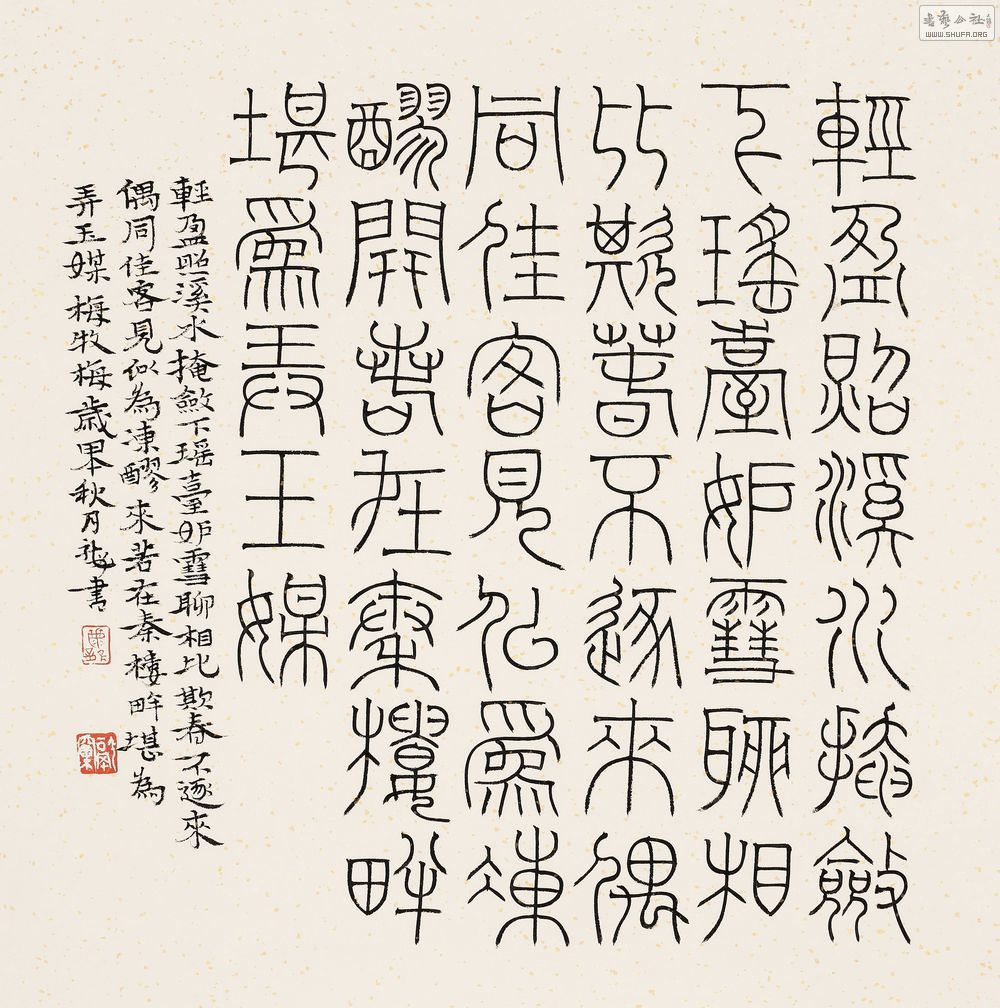 輕盈照溪水掩斂
下瑤臺妒雪聊相
比欺春不逐來偶
同佳客見似爲凍
醪開若在秦樓畔
堪爲弄玉媒
輕盈照溪水掩斂下瑶臺妒雪聊相比欺春不逐來
偶同佳客見似為凍醪來若在秦樓畔堪為
弄玉媒 牧梅歲 秋月 書
書藝公社
WWW.SHUFA.ORG